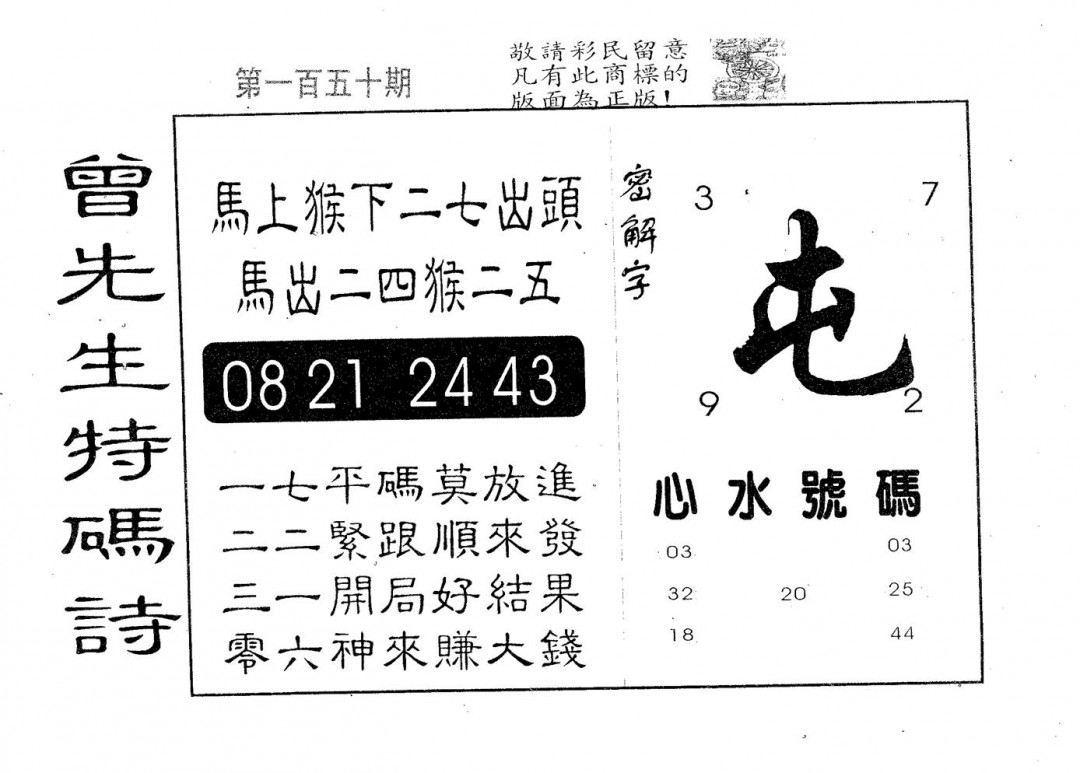 第一百五十期
敬請彩民留意
凡有此商標的
版面為正版!
曾先生特碼詩
馬上猴下二七出頭
馬出二四猴二五
08 21 24 43
一七平碼莫放進
二二緊跟順來發
三一開局好結果
零六神來賺大錢
密解字
3 7
屯
9 2
心水號碼
03 03
32 20 25
18 44